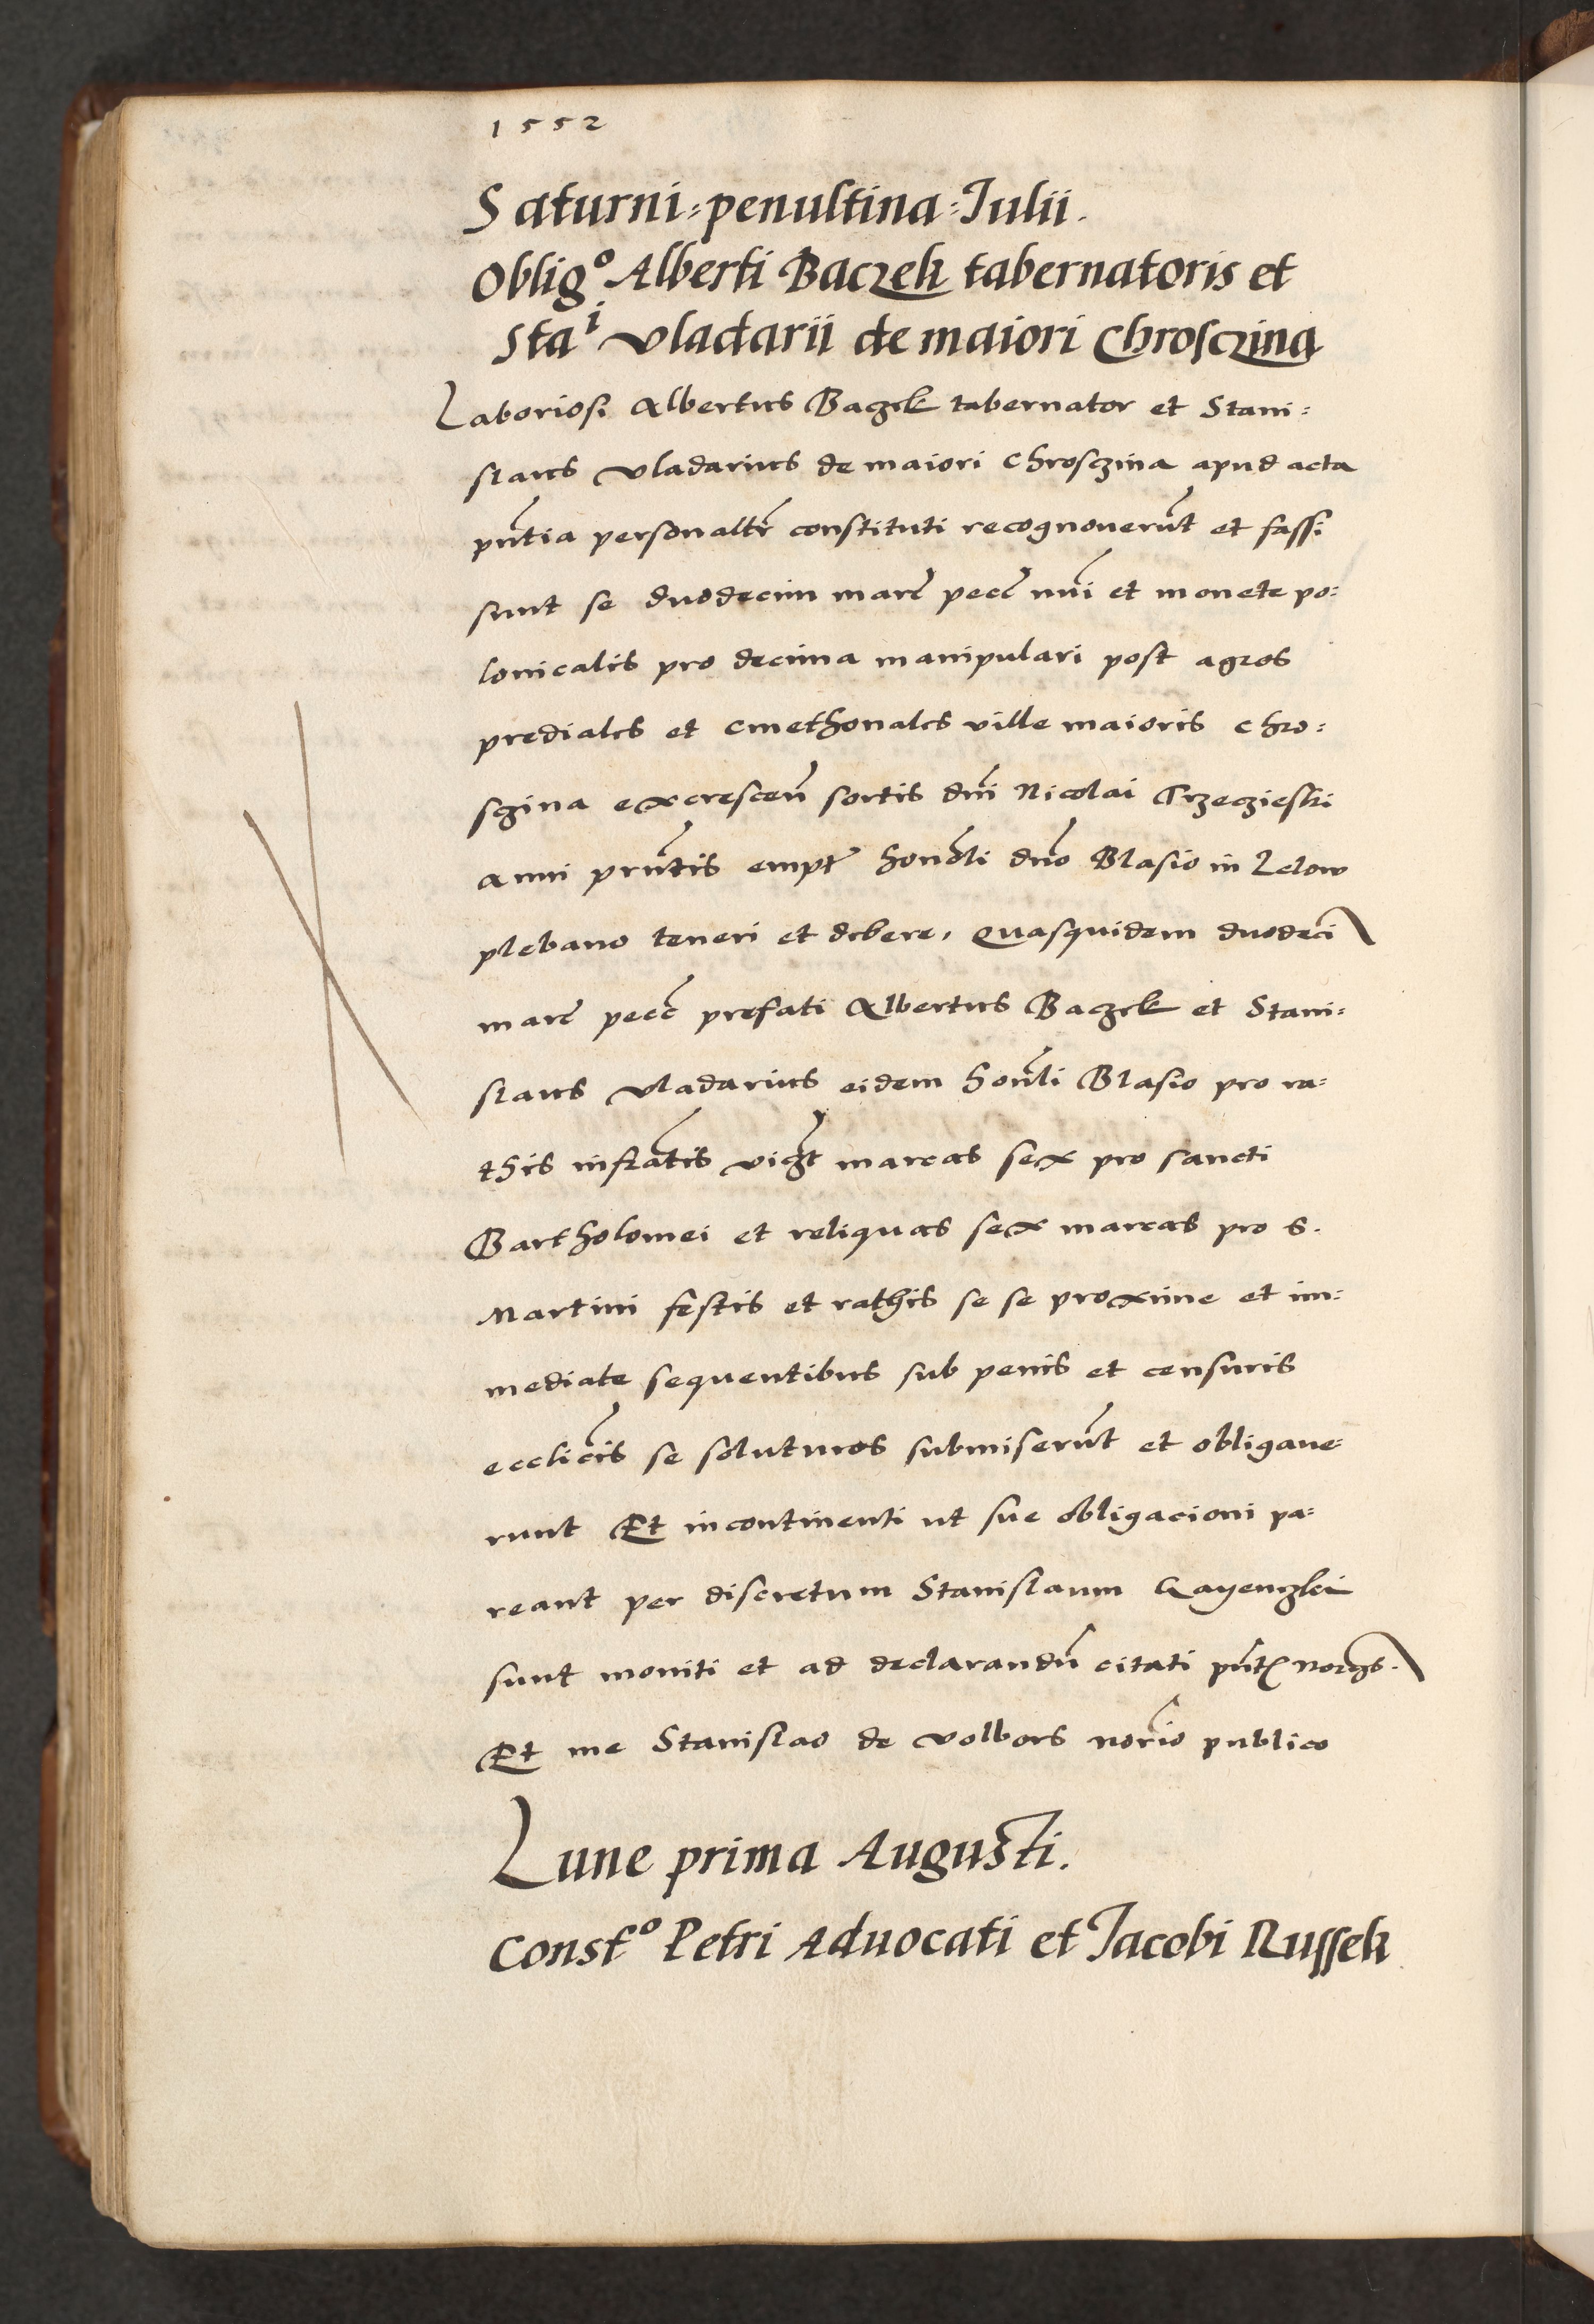 1552
Saturni penultina Julii.
Obligº Alberti Baczek tabernatoris et
Staⁱ vladarii de maiori Chrosczina
Laboriosi Albertus Baczek tabernator et Stani:
slaus vladarius de maiori Chrosczina apud acta
pntia personaltr constituti recognoverut et fassi
sunt se duodecim marc pecc nui et monete po:
lonicalis pro decima manipulari post agros
prediales et cmethonales ville maioris Chro:
sczina excrescen sortis dni Nicolai Trzeczieski
anni prntis empt honobli dno Blasio in Lelow
plebano teneri et debere, quasquidem duodeci
marc pecc prefati Albertus Baczek et Stani:
slaus vladarius eidem honbli Blasio pro ra:
this infratis vigt marcas sex pro sancti
Bartholomei et reliquas sex marcas pro s.
Martini festis et rathis se se proxime et im:
mediate sequentibus sub penis et censuris
ecclicis se soluturos submiserut et obligave:
runt Et incontinenti ut sue obligacioni pa:
reant per discretum Stanislaum
sunt moniti et ad declarandu citati pnt
Et me Stanislao de volbors norio publico
Lune prima Augusti.
Constº Petri Advocati et Jacobi Russek